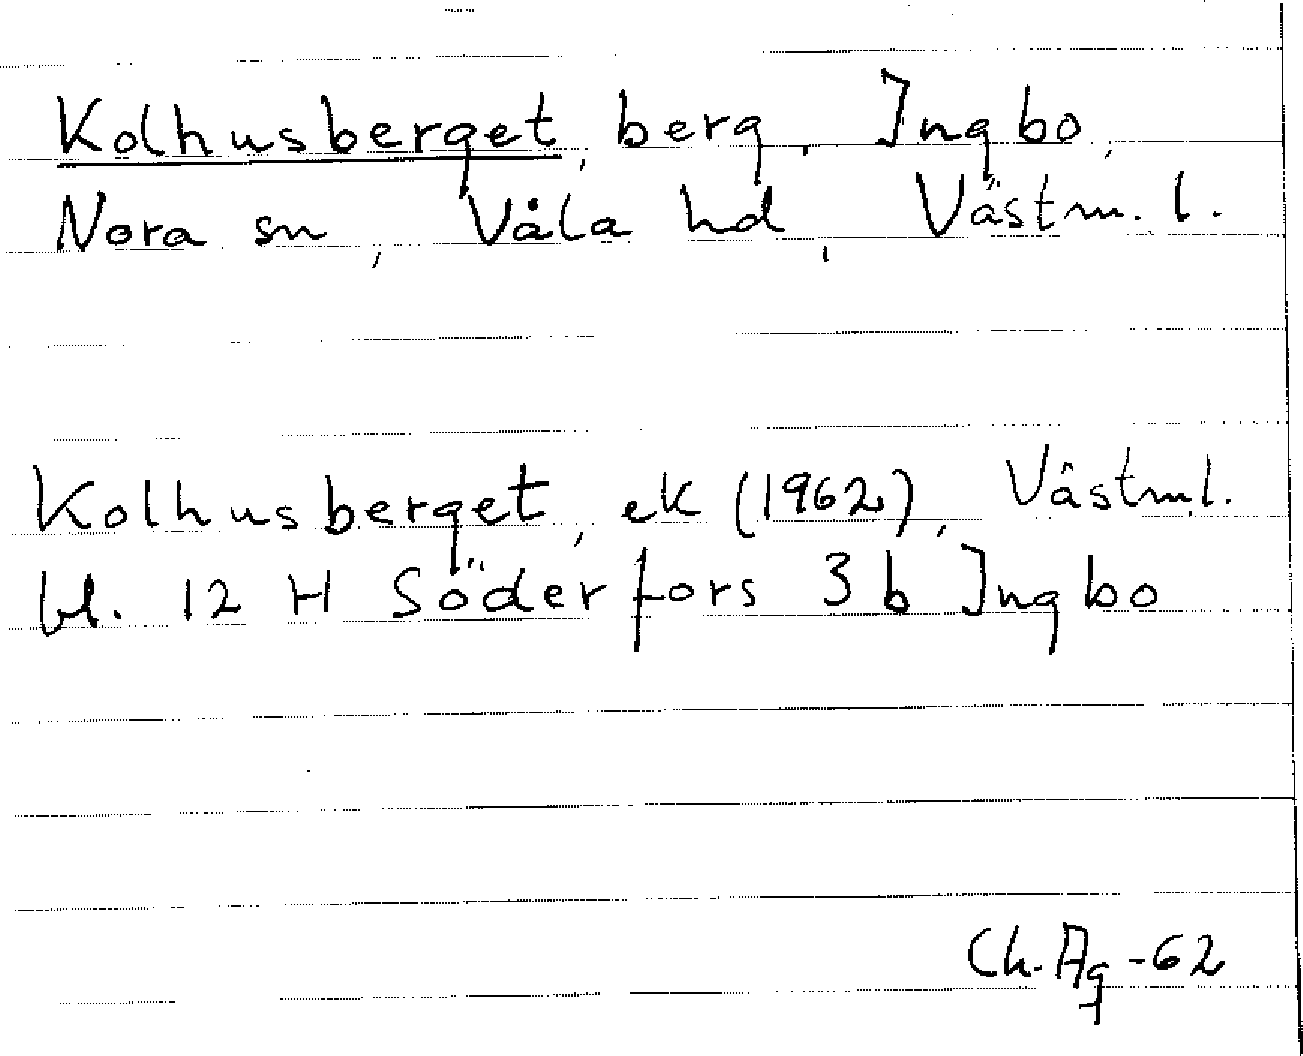 Kolhusberget, berg, Ingbo,
Nora sn, Våla hd, Västm. l.
Kolhusberget, ek (1962), Västml.
bl. 12 H Söderfors 3 b Ingbo
Ch. Ag -62